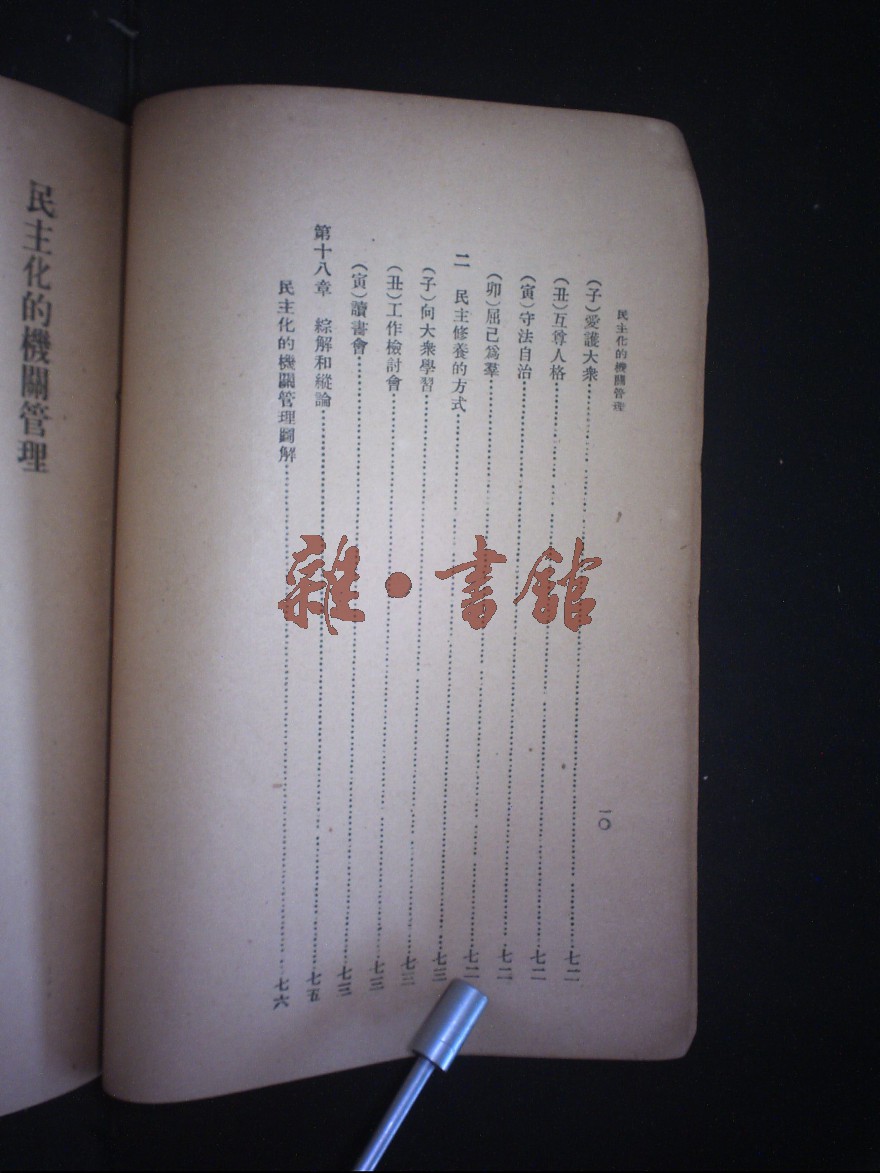 民主化的機關管理
一〇
(子)愛護大衆……七二
(丑)互尊人格……七二
(寅)守法自治……七二
(卯)屈己爲羣……七二
二 民主修養的方式……七三
(子)向大衆學習……七三
(丑)工作檢討會……七三
(寅)讀書會……七三
第十八章 綜解和縱論……七五
民主化的機關管理圖解……七六
民主化的機關管理
雜·書館